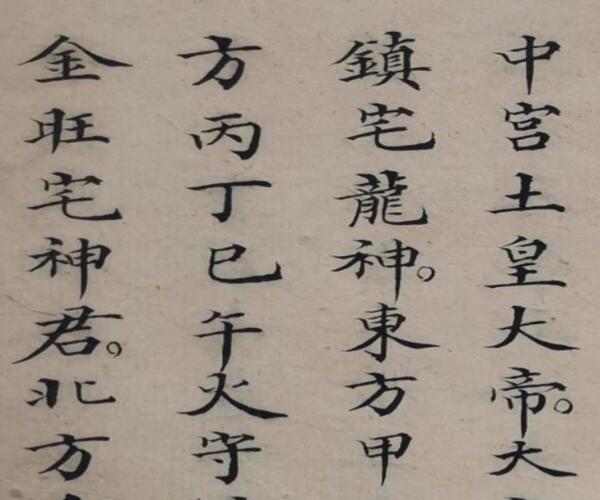 中宮土皇大帝。大
鎮宅龍神。東方甲
方丙丁巳午火守
金旺宅神君。北方